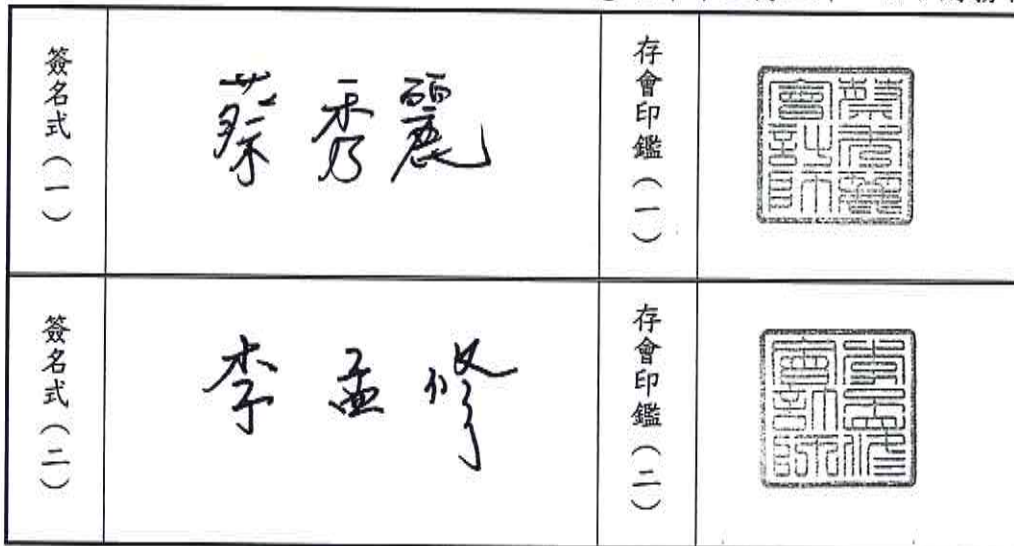 簽名式（一）
蔡秀麗
存會印鑑（一）
蔡秀麗會計師
簽名式（二）
李孟修
存會印鑑（二）
李孟修會計師